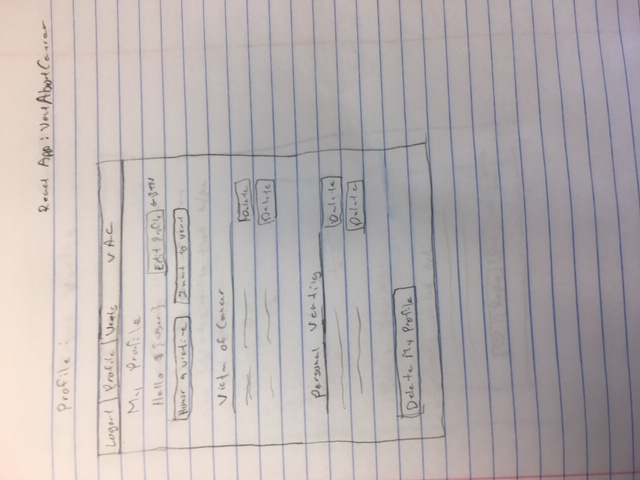 React App: VentAboutCancer
Profile:
Logout Profile Vents VAC
My Profile
Hello ${user} Edit Profile ← BTN
Honor a victim I want to vent
Victim of Cancer
Delete
Delete
Personal Venting
Delete
Delete
Delete My Profile